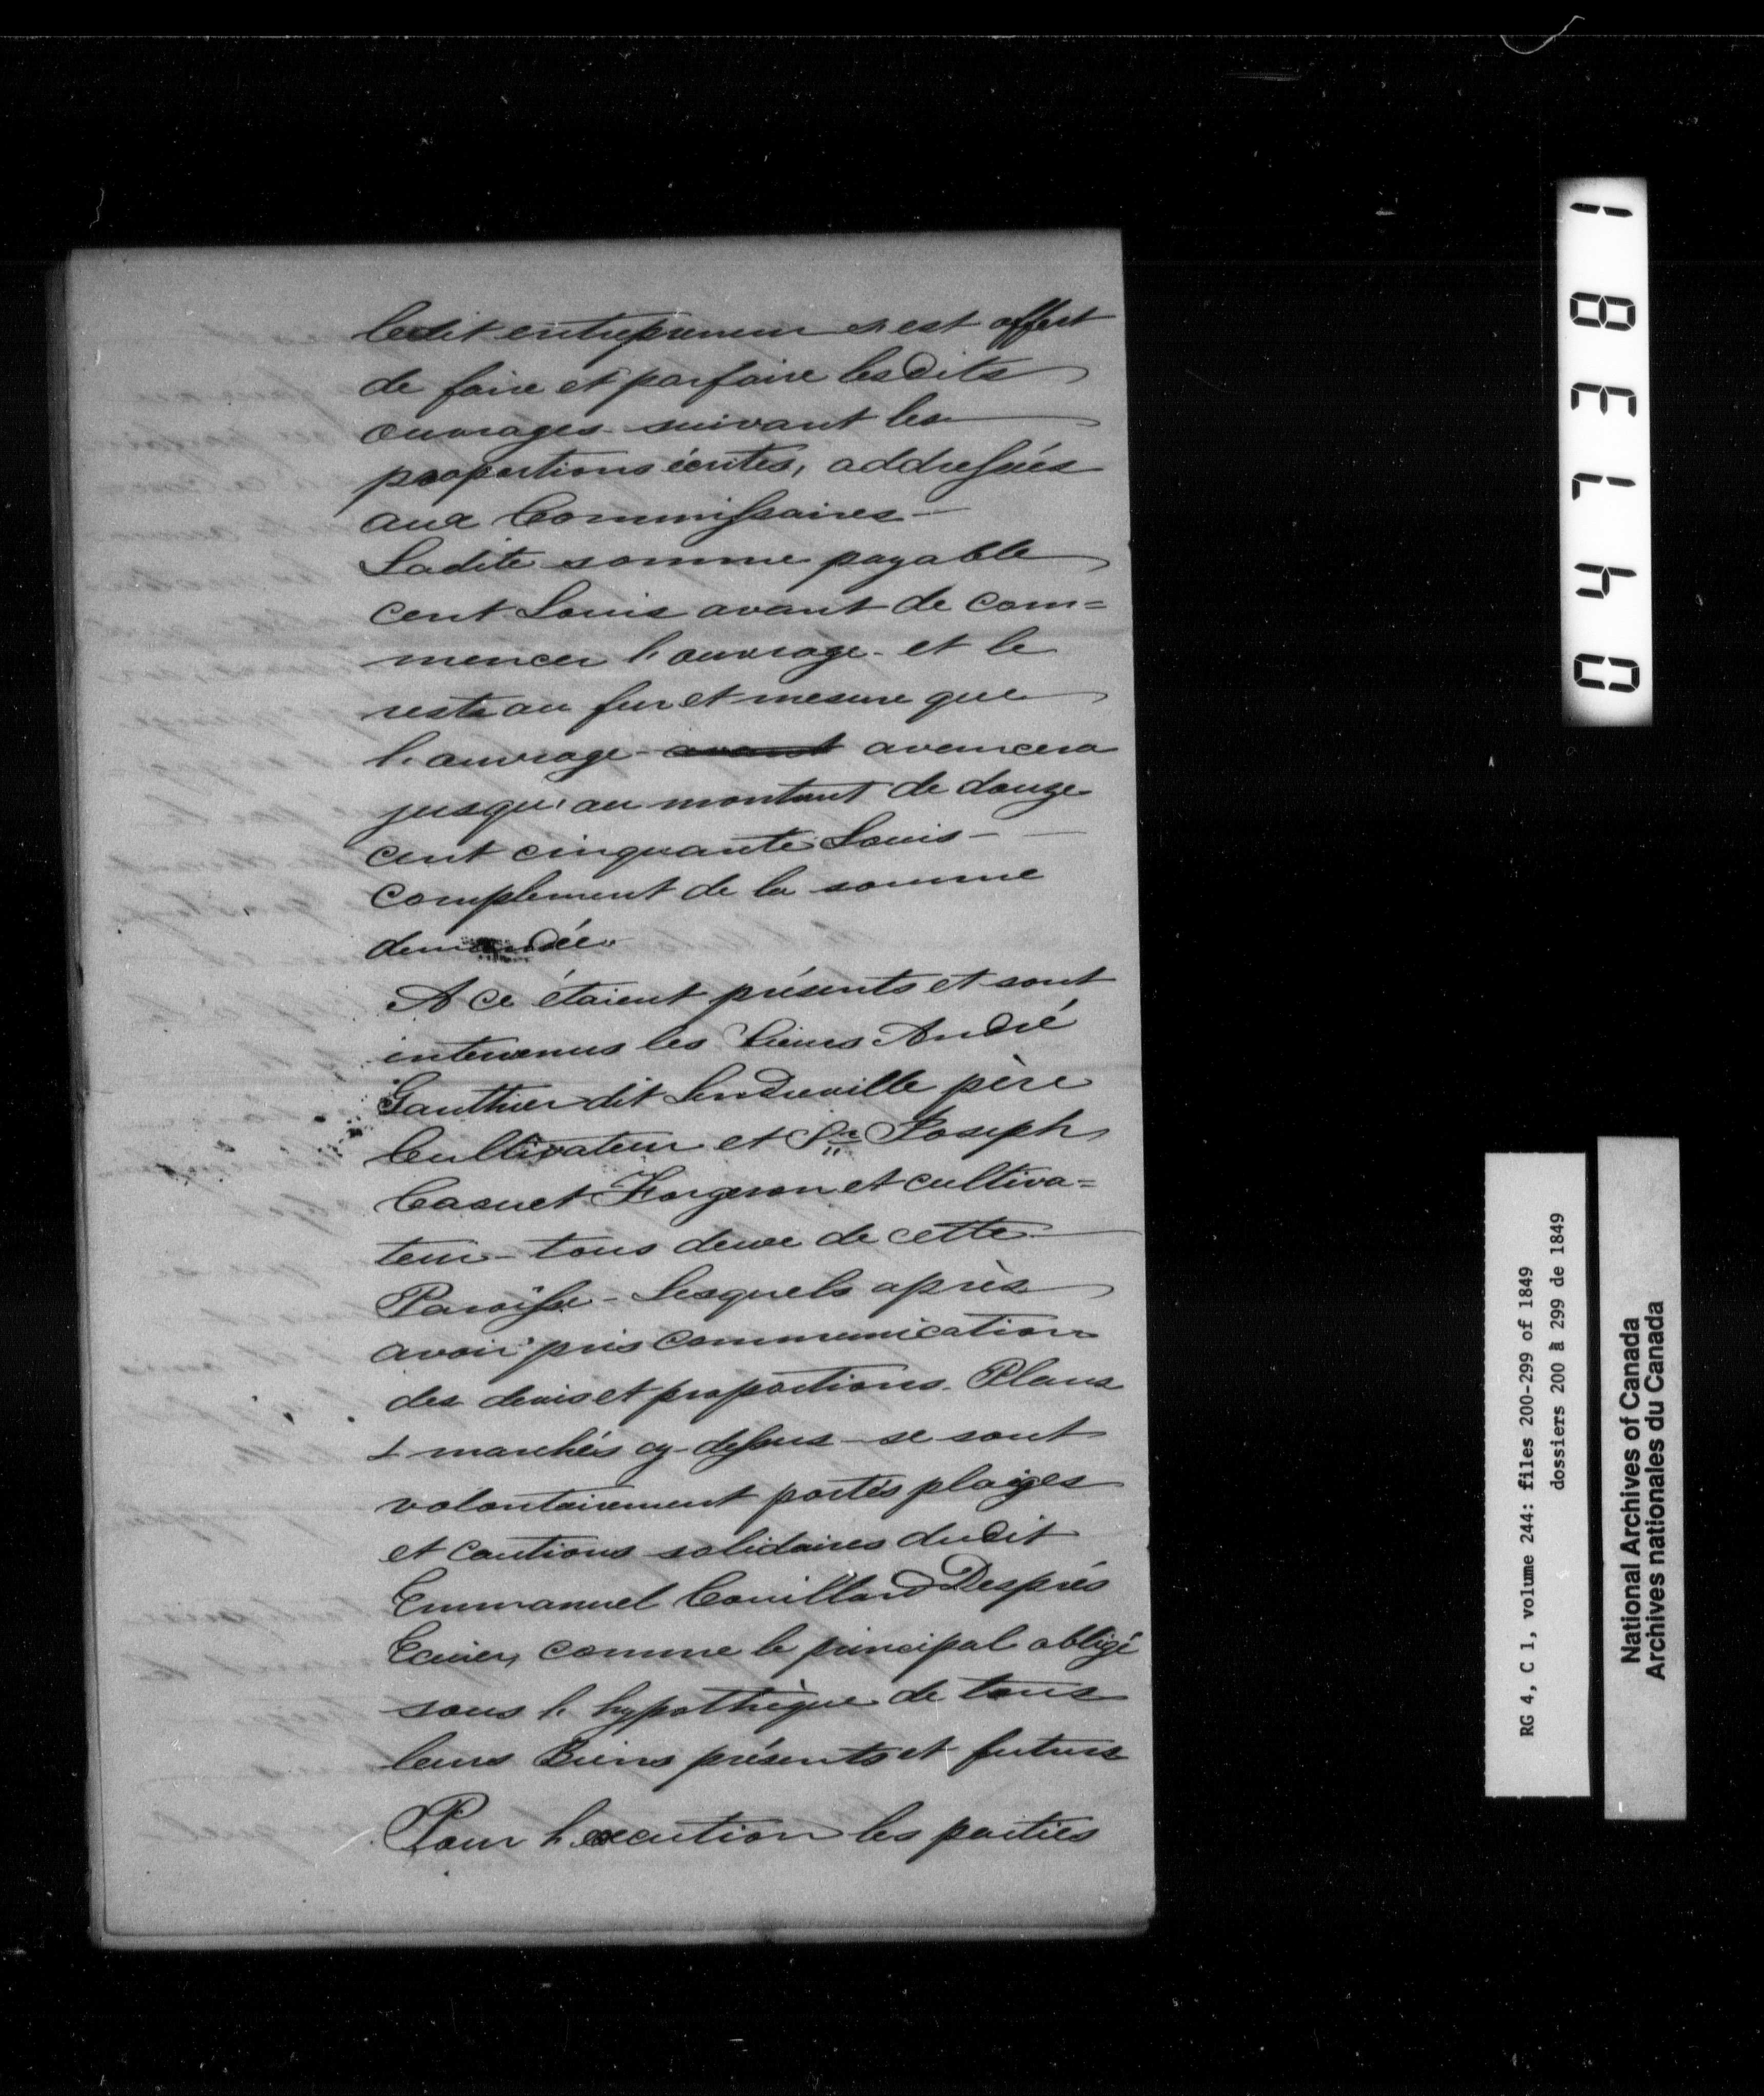 ledit entrepreneur s'est offert
de faire et parfaire lesdits
ouvrages suivant les
proportions écrites, addressées
aux Commissaires —
Ladite somme payable
cent Louis avant de com=
mencer l'ouvrage - et le
reste au fur et mesure que
l'ouvrage avant avancera
jusqu'au montant de douze
cent cinquante Louis —
complement de la somme
demandée.
A ce étaient présents et sont
intervenus les Sieurs André
Gauthier dit Landreville père
Cultivateur et Sr. Joseph
Forgeron et cultiva=
teur - tous deux de cette
Paroisse - Lesquels après
avoir pris communication
des devis et proportions. Plans
& marchés cy-dessus - se sont
volontairement portés pleiges
et cautions solidaires dudit
Emmanuel Couillard Després
Ecuier, comme le principal obligé
sous l'hypothèque de tous
leurs Biens présents et futurs
Pour l'execution les parties
047381
RG 4, C 1, volume 244: files 200-299 of 1849
dossiers 200 à 299 de 1849
National Archives of Canada
Archives nationales du Canada